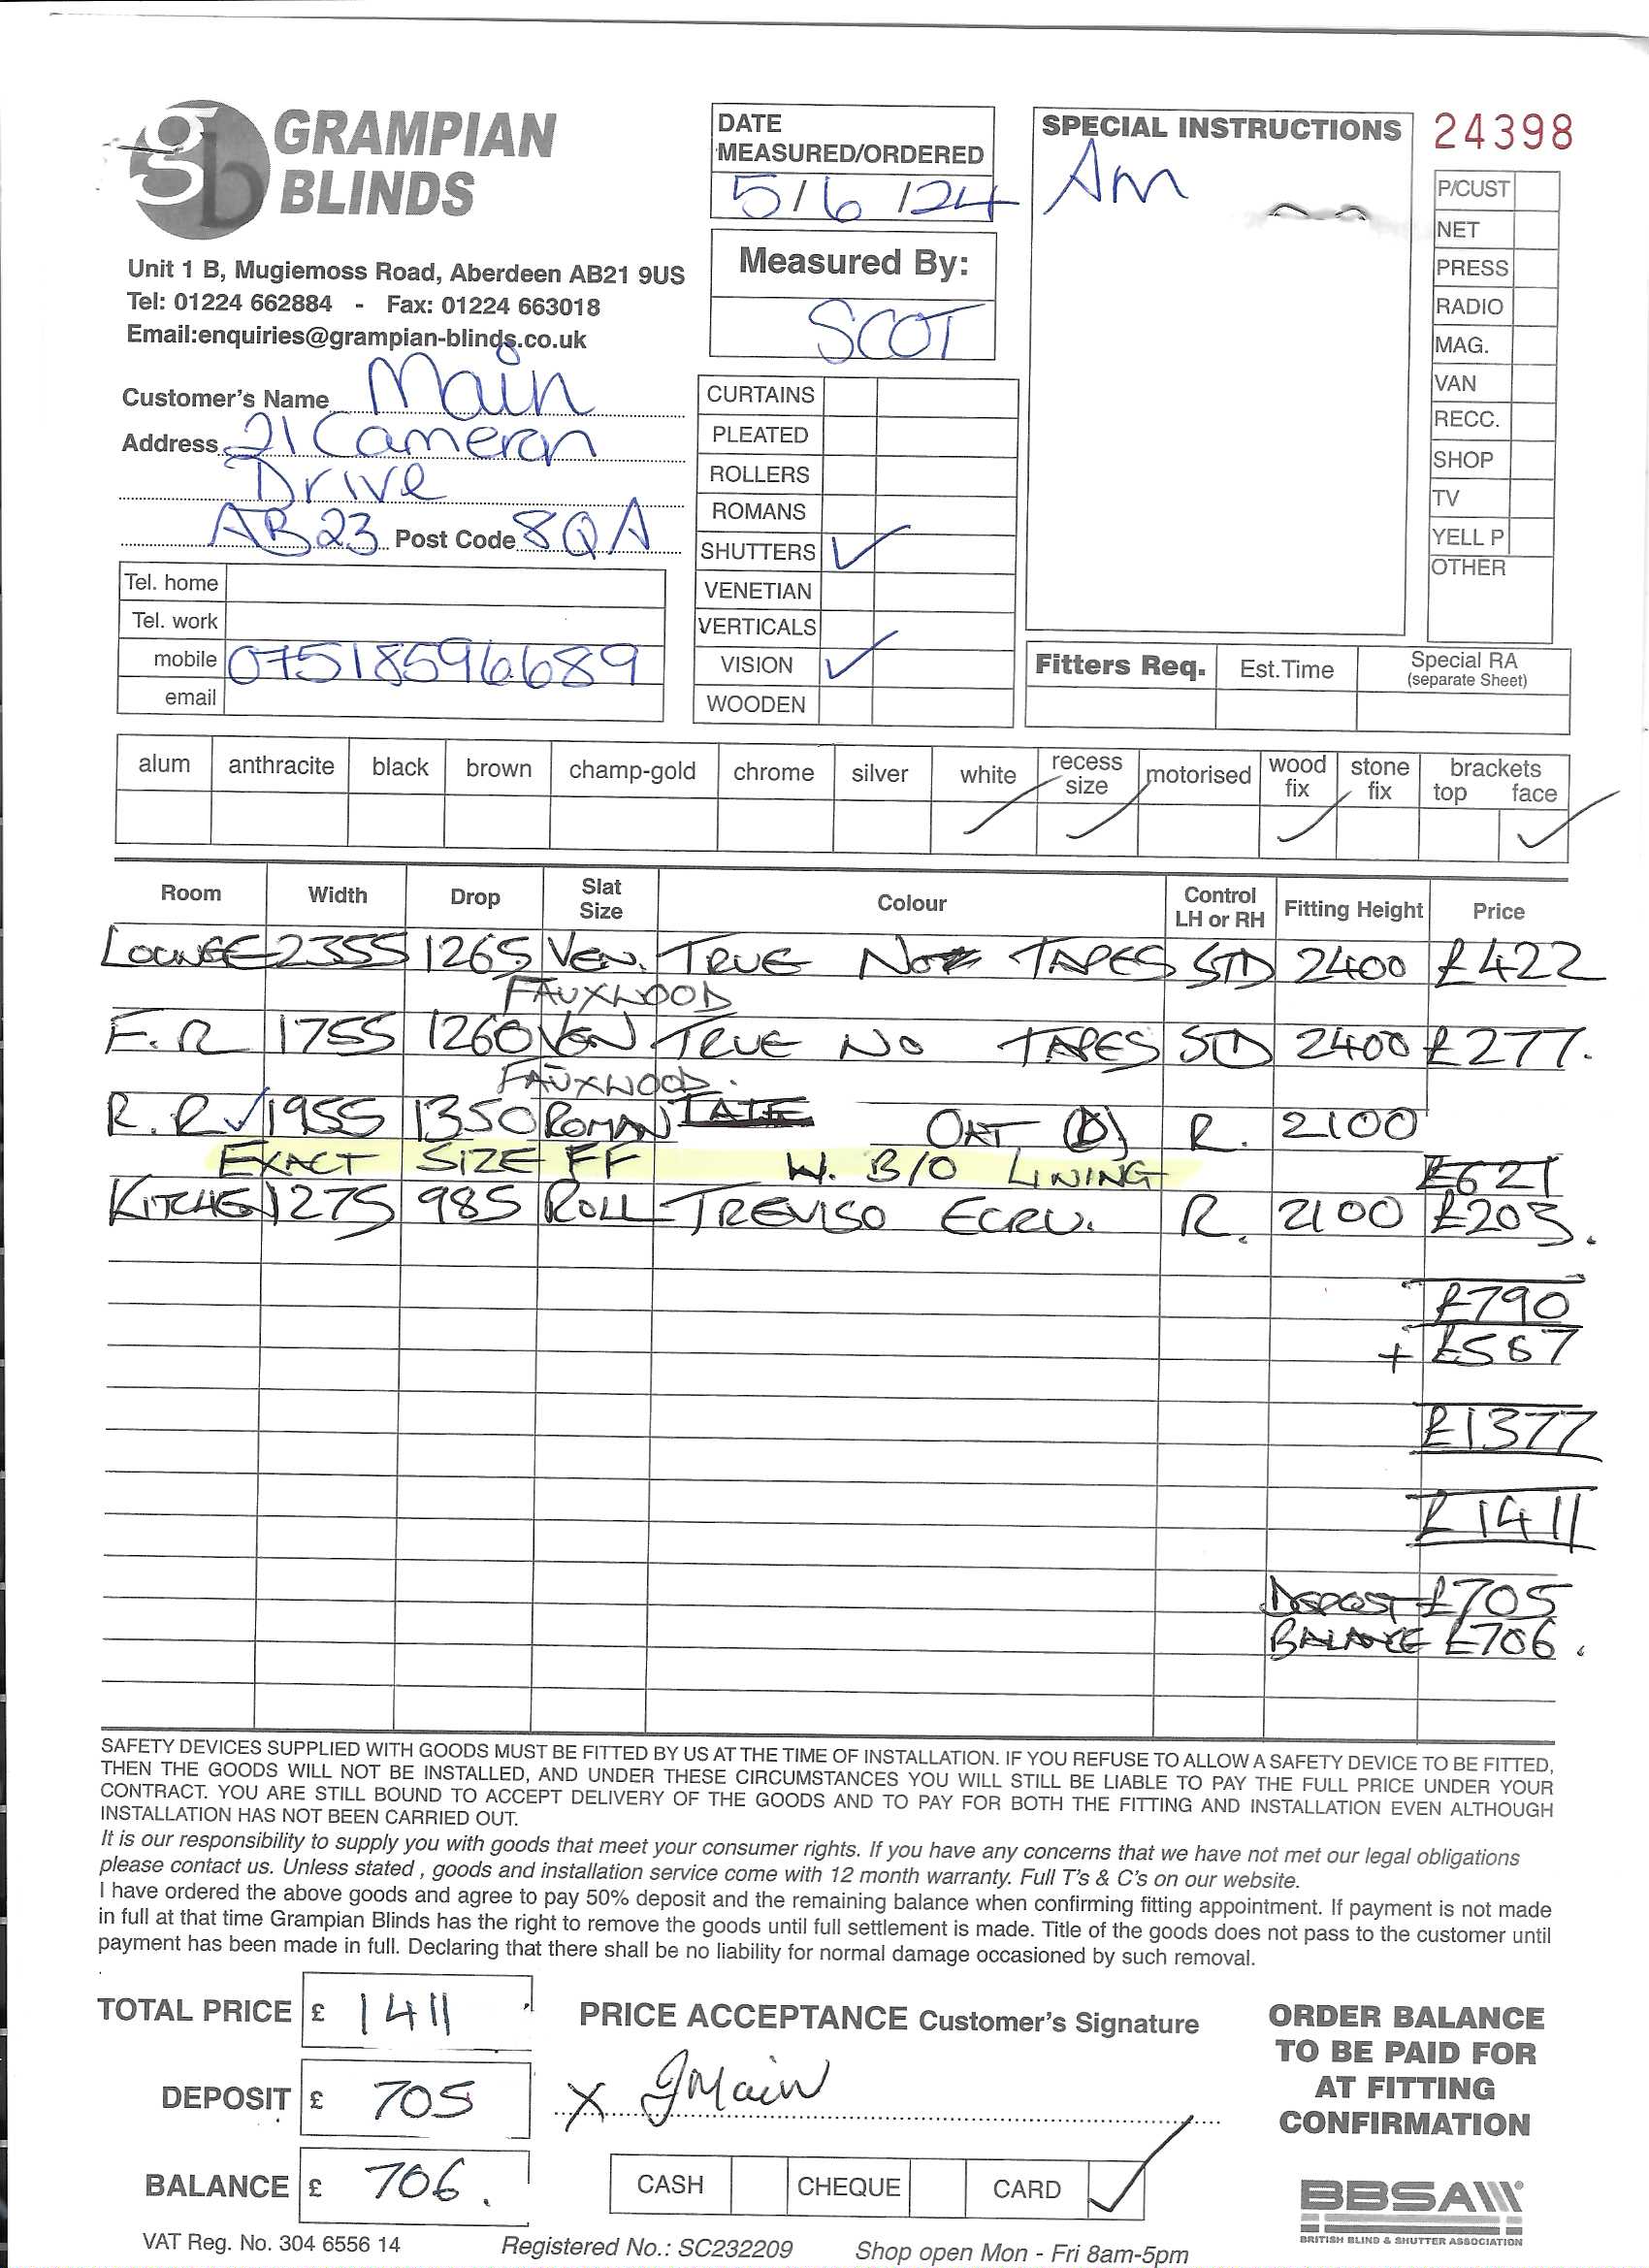 gb GRAMPIAN
BLINDS
Unit 1 B, Mugiemoss Road, Aberdeen AB21 9US
Tel: 01224 662884 - Fax: 01224 663018
Email:enquiries@grampian-blinds.co.uk
Customer's Name Main
Address 21 Cameron
Drive
AB23 Post Code 8QA
Tel. home
Tel. work
mobile 07518596689
email
DATE
MEASURED/ORDERED
5/6/24
Measured By:
SCOT
CURTAINS
PLEATED
ROLLERS
ROMANS
SHUTTERS ✓
VENETIAN
VERTICALS
VISION ✓
WOODEN
SPECIAL INSTRUCTIONS
Am
24398
P/CUST
NET
PRESS
RADIO
MAG.
VAN
RECC.
SHOP
TV
YELL P
OTHER
Fitters Req. Est.Time Special RA
(separate Sheet)
alum anthracite black brown champ-gold chrome silver white recess size motorised wood fix stone fix brackets top face
✓ ✓ ✓ ✓
Room Width Drop Slat Size Colour Control LH or RH Fitting Height Price
LOUNGE 2355 1265 VEN. TRUE NO TAPES STD 2400 £422
FAUXWOOD
F.R 1755 1260 VEN TRUE NO TAPES STD 2400 £277.
FAUXWOOD.
R.R ✓ 1955 1350 ROMAN OAT (D) R. 2100
EXACT SIZE FF W. B/O LINING £621
KITCHEN 1275 985 ROLL TREVISO ECRU. R. 2100 £203.
£790
+ £587
£1377
£1411
DEPOSIT £705
BALANCE £706.
SAFETY DEVICES SUPPLIED WITH GOODS MUST BE FITTED BY US AT THE TIME OF INSTALLATION. IF YOU REFUSE TO ALLOW A SAFETY DEVICE TO BE FITTED,
THEN THE GOODS WILL NOT BE INSTALLED, AND UNDER THESE CIRCUMSTANCES YOU WILL STILL BE LIABLE TO PAY THE FULL PRICE UNDER YOUR
CONTRACT. YOU ARE STILL BOUND TO ACCEPT DELIVERY OF THE GOODS AND TO PAY FOR BOTH THE FITTING AND INSTALLATION EVEN ALTHOUGH
INSTALLATION HAS NOT BEEN CARRIED OUT.
It is our responsibility to supply you with goods that meet your consumer rights. If you have any concerns that we have not met our legal obligations
please contact us. Unless stated , goods and installation service come with 12 month warranty. Full T's & C's on our website.
I have ordered the above goods and agree to pay 50% deposit and the remaining balance when confirming fitting appointment. If payment is not made
in full at that time Grampian Blinds has the right to remove the goods until full settlement is made. Title of the goods does not pass to the customer until
payment has been made in full. Declaring that there shall be no liability for normal damage occasioned by such removal.
TOTAL PRICE £ 1411
DEPOSIT £ 705
BALANCE £ 706.
PRICE ACCEPTANCE Customer's Signature
X JMain
CASH CHEQUE CARD ✓
ORDER BALANCE
TO BE PAID FOR
AT FITTING
CONFIRMATION
BBSA
BRITISH BLIND & SHUTTER ASSOCIATION
VAT Reg. No. 304 6556 14 Registered No.: SC232209 Shop open Mon - Fri 8am-5pm